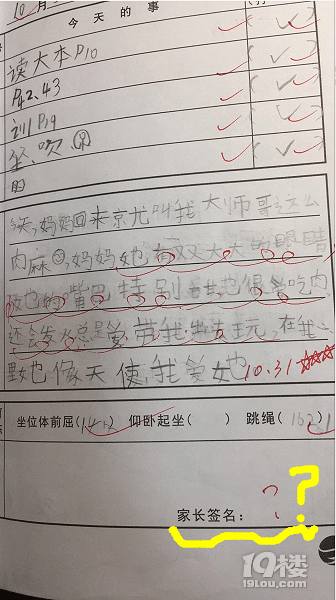 10月
今天的事
读大本P10
P42、43
训P19
坐、吹、
的
今天,妈妈回来京尤叫我大师哥这么
肉麻,妈妈她有双大大的眼睛
她的嘴巴特别 她很爱吃肉
还会发火总是爱带我出去玩,在我心
里她像天使,我爱她 10.31
坐位体前屈(14.2) 仰卧起坐( ) 跳绳( )
家长签名:
?
19楼
19lou.com